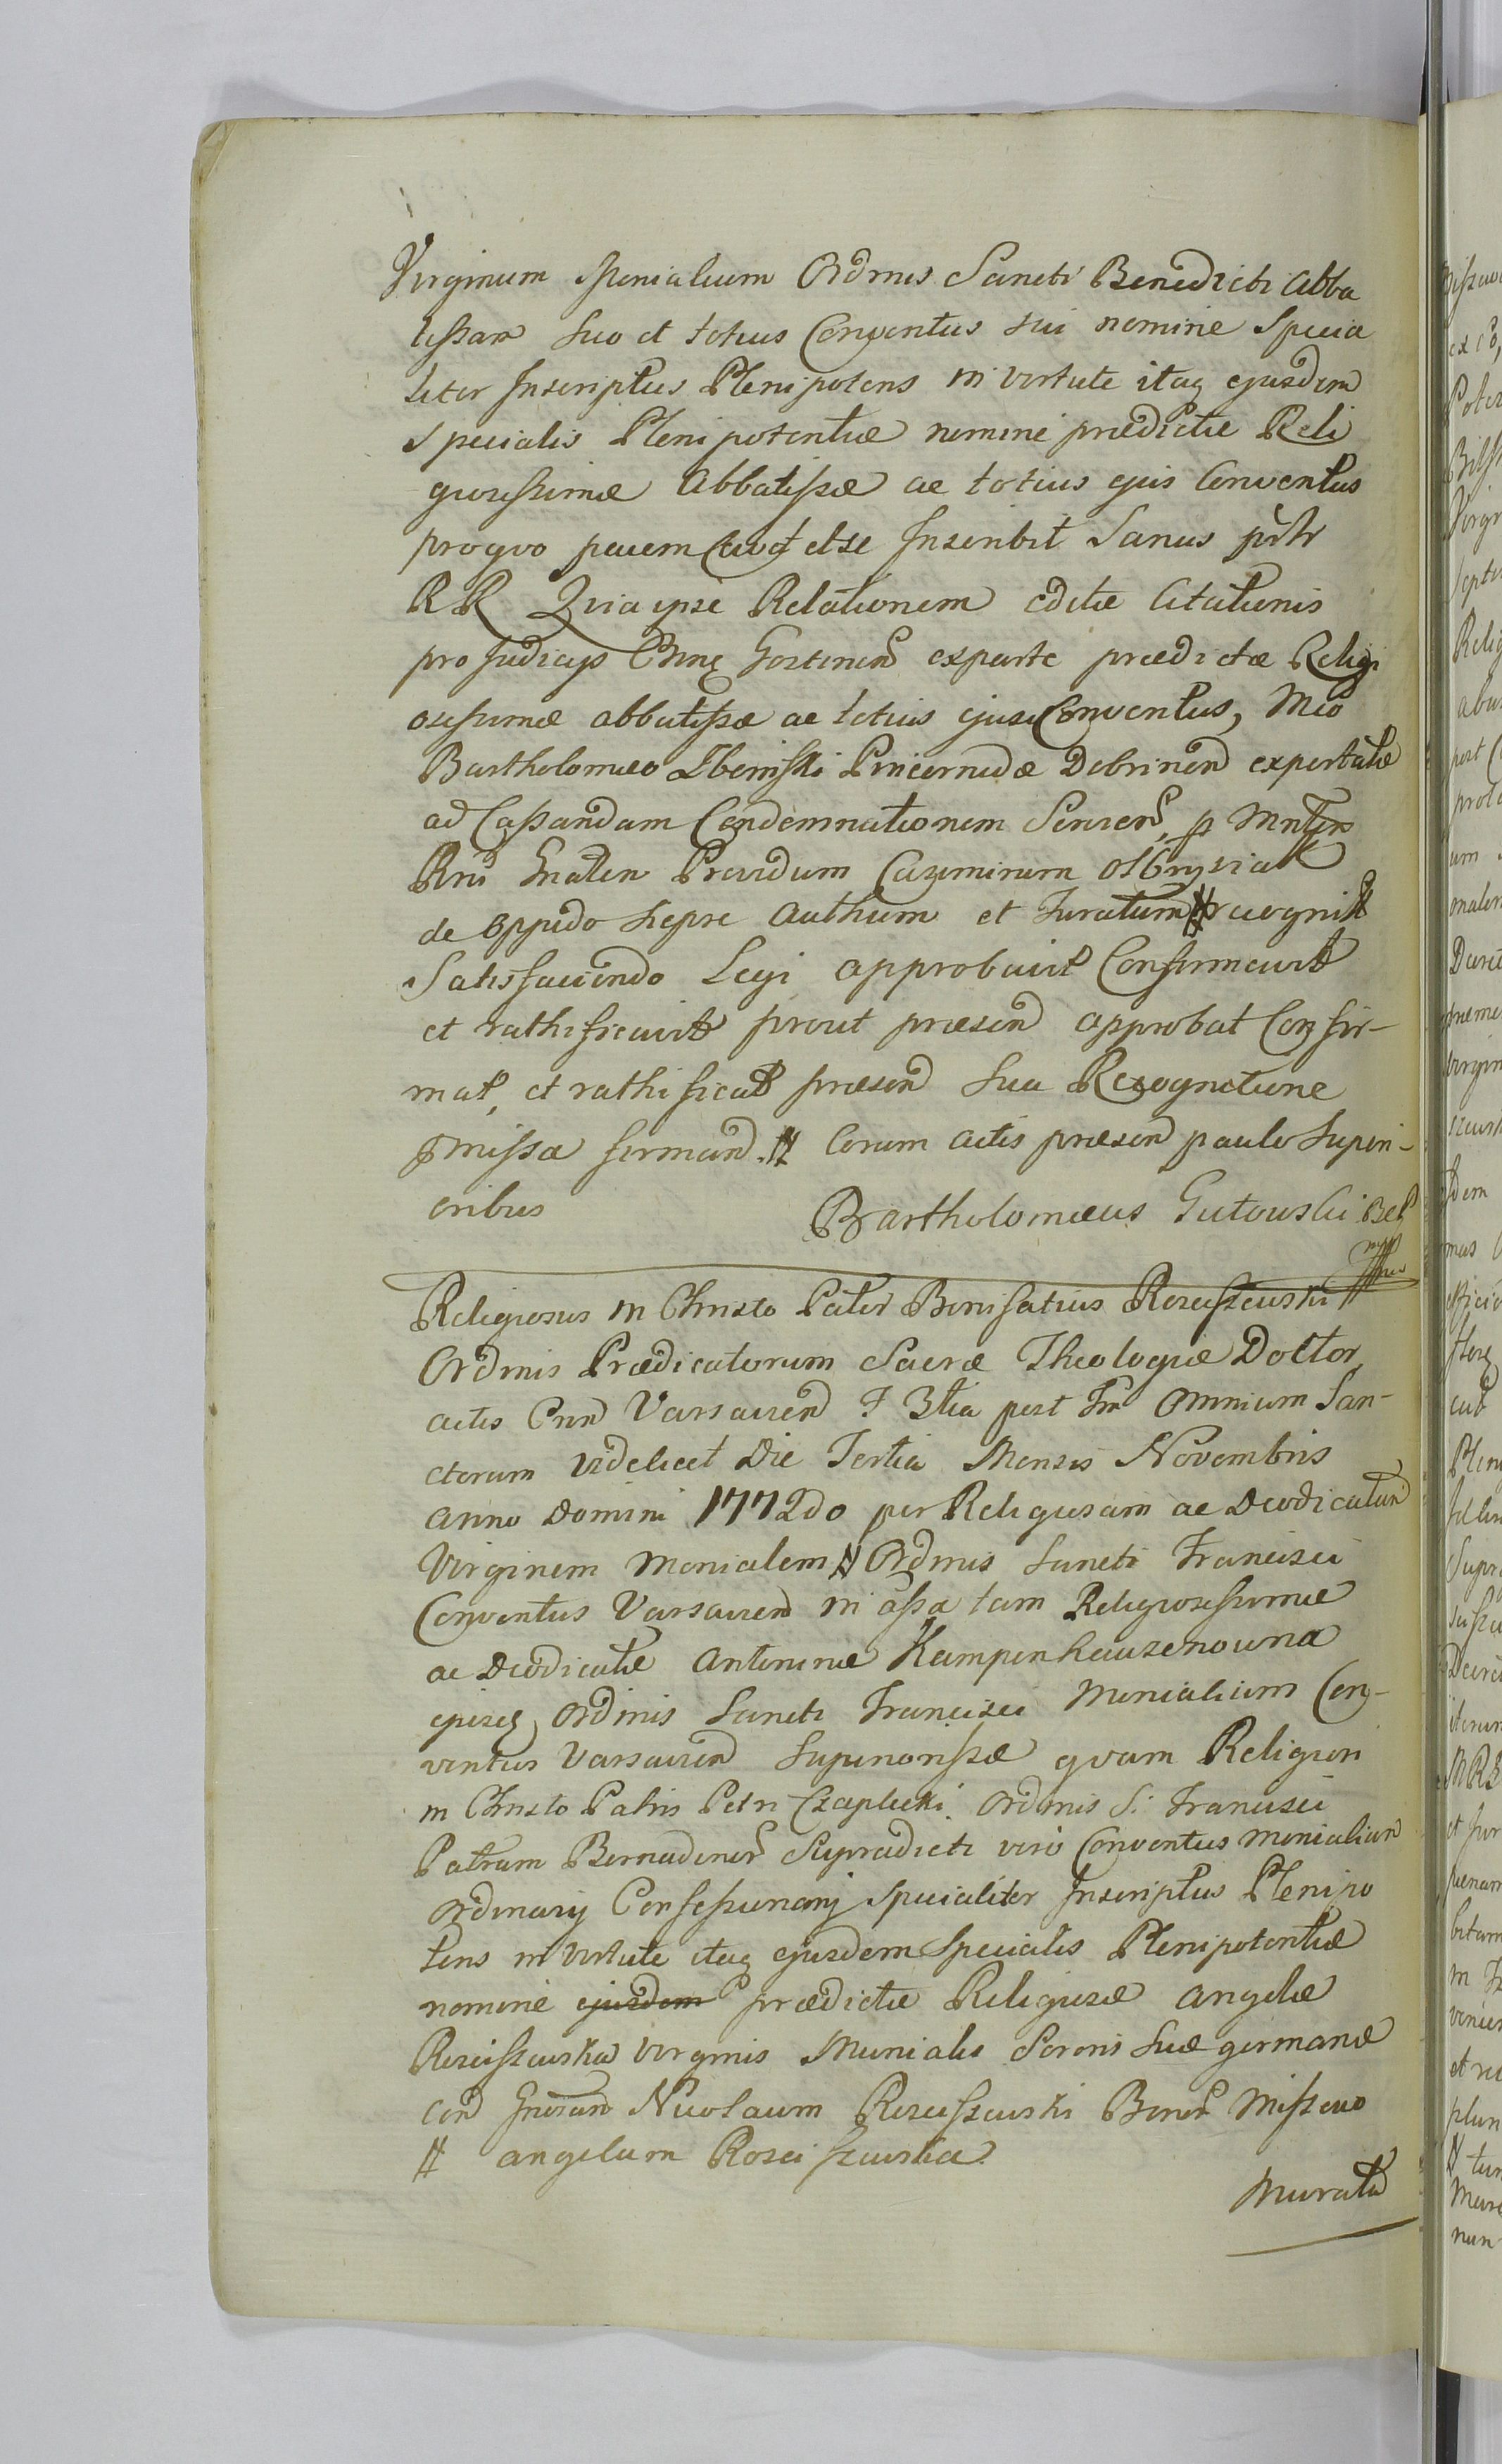 Virginum Monialium Ordinis Sancti Benedicti Abba
tissam suo et totius Conventus sui nomine Specia
liter Inscriptus Plenipotens in virtute itaq ejusdem
Specialis Plenipotentiæ nomine prædictæ Reli
giosissimæ Abbatissæ ac totius ejus Conventus
pro quo pacem et se Inscribit Sanus
RR Quia ipse Relationem editæ Citationis
pro Judicijs Gostinen exparte prædictæ Religi
osissimæ abbatissæ ac totius ejus Conventus, Mco
Bartholomæo Zboinski Pincernidæ Dobrinen exportatæ
ad Cassandam Condemnationem p Mntrm
Rni Gnalen Providum Cazimirum Olbrysiak
de oppido Sepre Authum et Juratum # recognit
Satisfaciendo Legi approbavit Confirmavit
et rathificavit prout præsen approbat Confir-
mat, et rathificat præsen sua Recognitione
pmissa firmand. # Coram actis præsen paulo Superi-
oribus
Bartholomæus Gutowski
Religiosus in Christo Pater Bonifatius Rosciszewski
Ordinis Prædicatorum Sacræ Theologiæ Doctor
actis Cnn Varsavien F 3tia post Fm Omnium San-
ctorum videlicet Die Tertia Mensis Novembris
anno Domini 1772do per Religiosam ac Deodicatam
Virginem Monialem # Ordinis Sancti Francisci
Conventus Varsavien in assa tam Religiosissimæ
ac Deodicatæ Antoninæ Kampenhauzenowna
ejusq Ordinis Sancti Francisci Monialium Con-
ventus Varsavien Superiorissæ quam Religiosi
in Christo Patris Petri Czaplicki Ordinis S: Francisci
Patrum Bernadinor Supradicti vero Conventus Monialium
Ordinarij Confessionarij Specialiter Inscriptus Plenipo
tens in virtute itaq ejusdem Specialis Plenipotentiæ
nomine ejusdem prædictæ Religiosæ Angelæ
Rosciszewska Virginis Monialis Sororis Suæ germanæ
con Gnosum Nicolaum Rosciszewski Bonor Miszewo
# angelam Rosciszewska
Murata